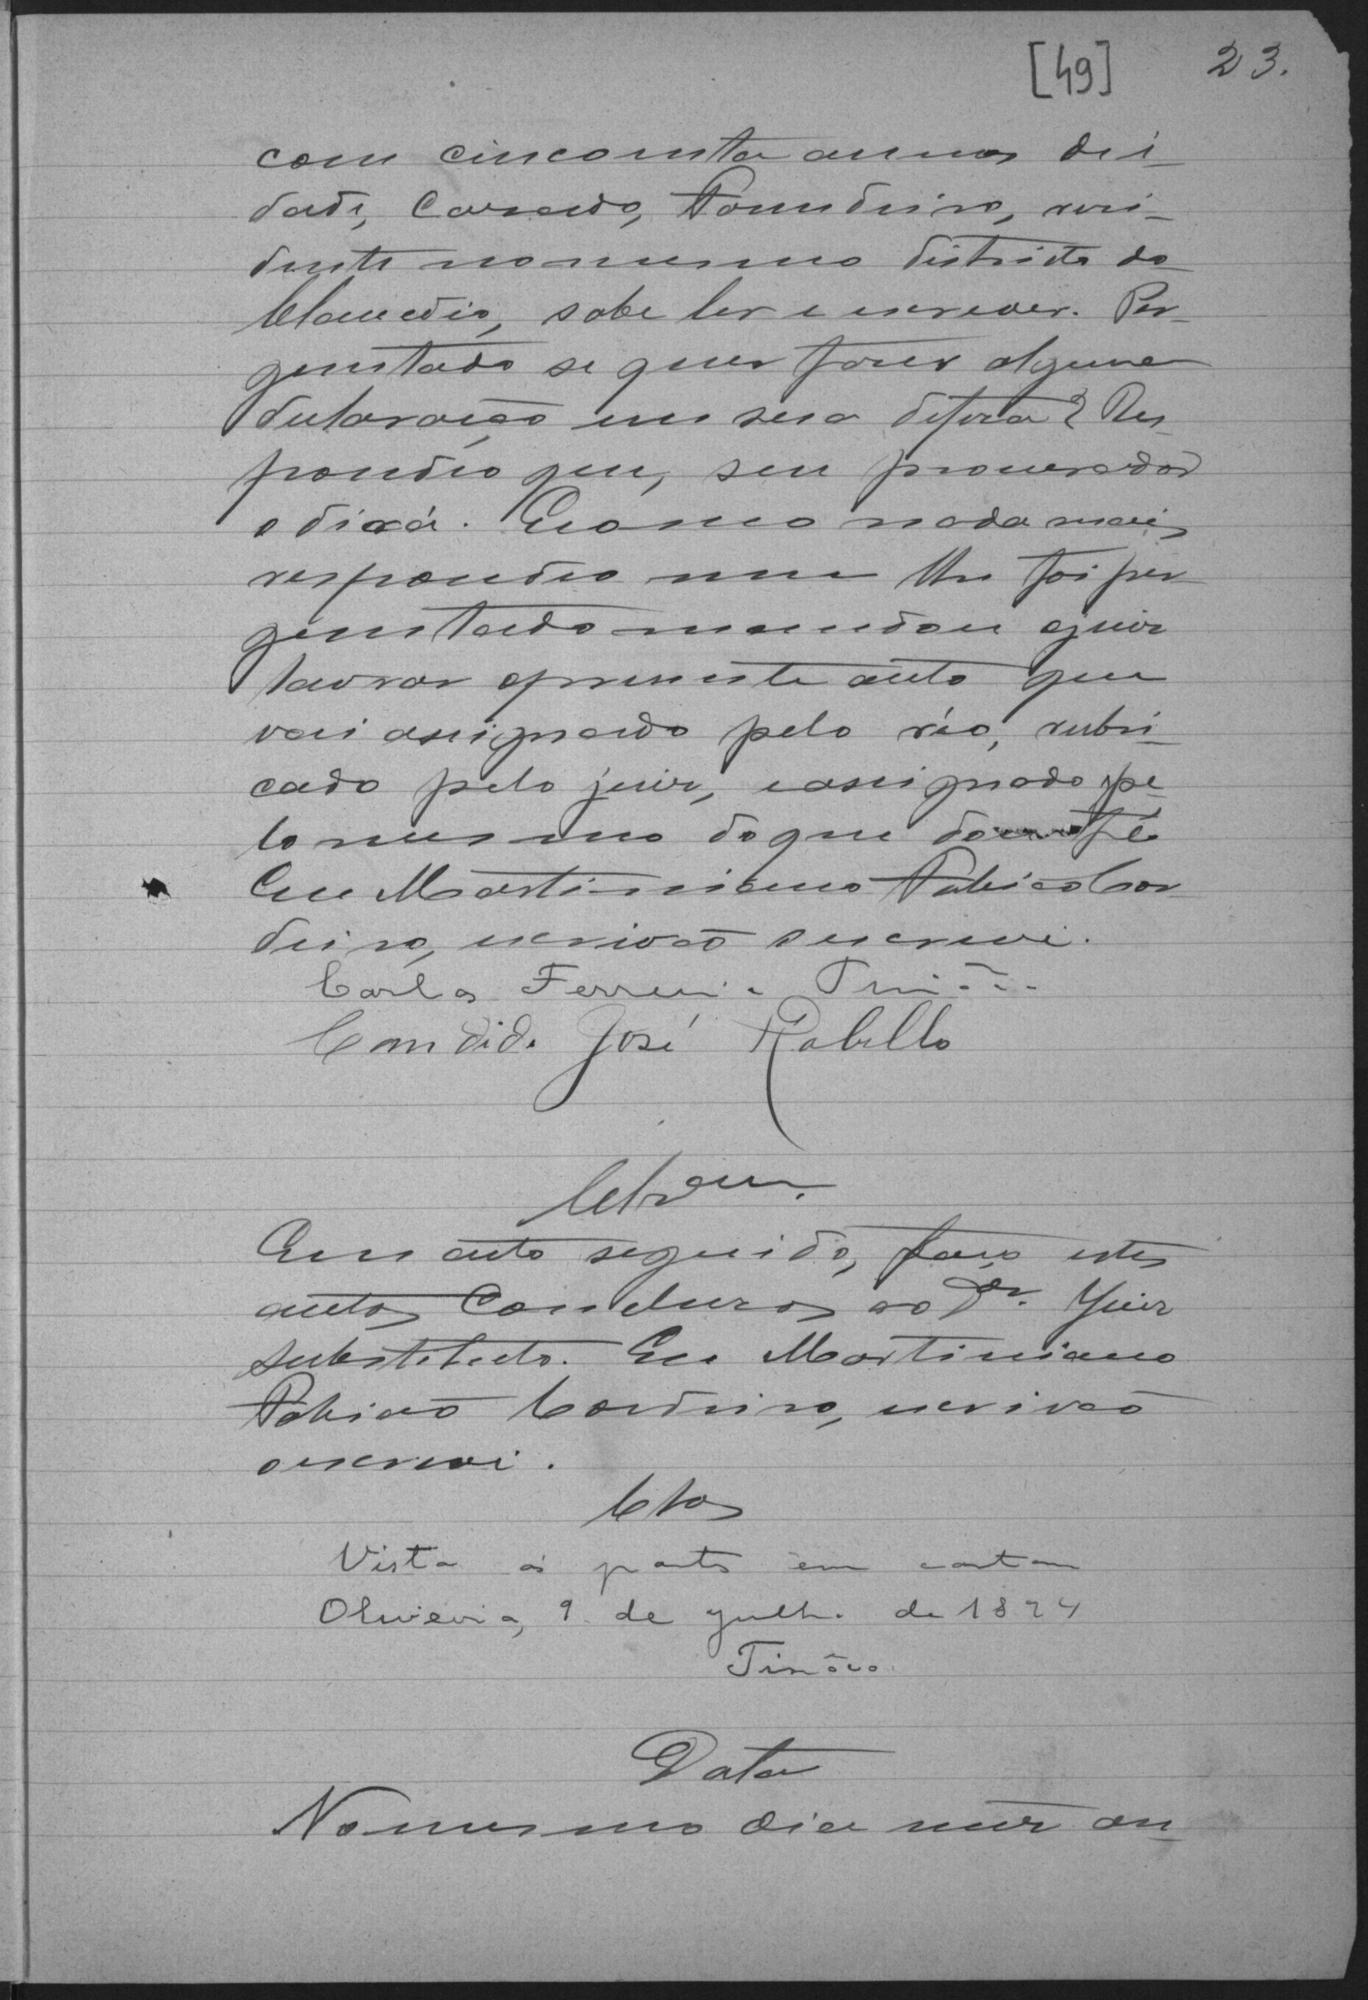 [49] 23.
com cincoenta annos de i-
dade, Casado, Fasendeiro, resi-
dente no mesmo districto do
Claudio, sabe ler e escrever. Per-
guntado se quer fazer alguma
declaração em sua defesa? Res
pondeo que, seu procurador
o dirá. E como nada mais
respondeo nem lhe foi per
guntado mandou o juiz
lavrar o presente auto que
vai assignado pelo réo, rubri-
cado pelo juiz, e assignado pe-
lo mesmo do que dou fé
Eu Martiniano Cor
deiro, escrivão o escrevi.
Carlos Ferreira Tinôco
Candido José Rabello
Clzam.
Em acto seguido, faço estes
autos Conclusos ao Dr. Juiz
substituto. Eu Martiniano
Cordeiro, escrivão
o escrevi.
Clsos
Vista ás partes em cartorio
Oliveira, 9 de Julho de 1894
Tinôco.
Data
No mesmo dia mez an-